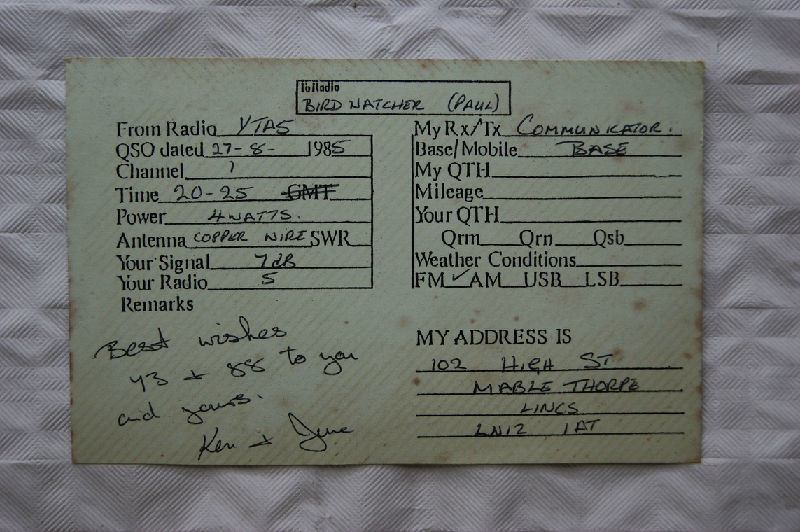 To Radio
BIRD WATCHER (PAUL)
From Radio VTAS
QSO dated 27-8- 1985
Channel 1
Time 20-25 GMT
Power 4 WATTS.
Antenna COPPER WIRE SWR
Your Signal 7 dB
Your Radio 5
Remarks
Best wishes
73 + 88 to you
and yours.
Ken + June
My Rx/Tx COMMUNICATOR.
Base/Mobile BASE
My QTH
Mileage
Your QTH
Qrm Qrn Qsb
Weather Conditions
FM ✓ AM USB LSB
MY ADDRESS IS
102 HIGH ST
MABLE THORPE
LINCS
LN12 1AT